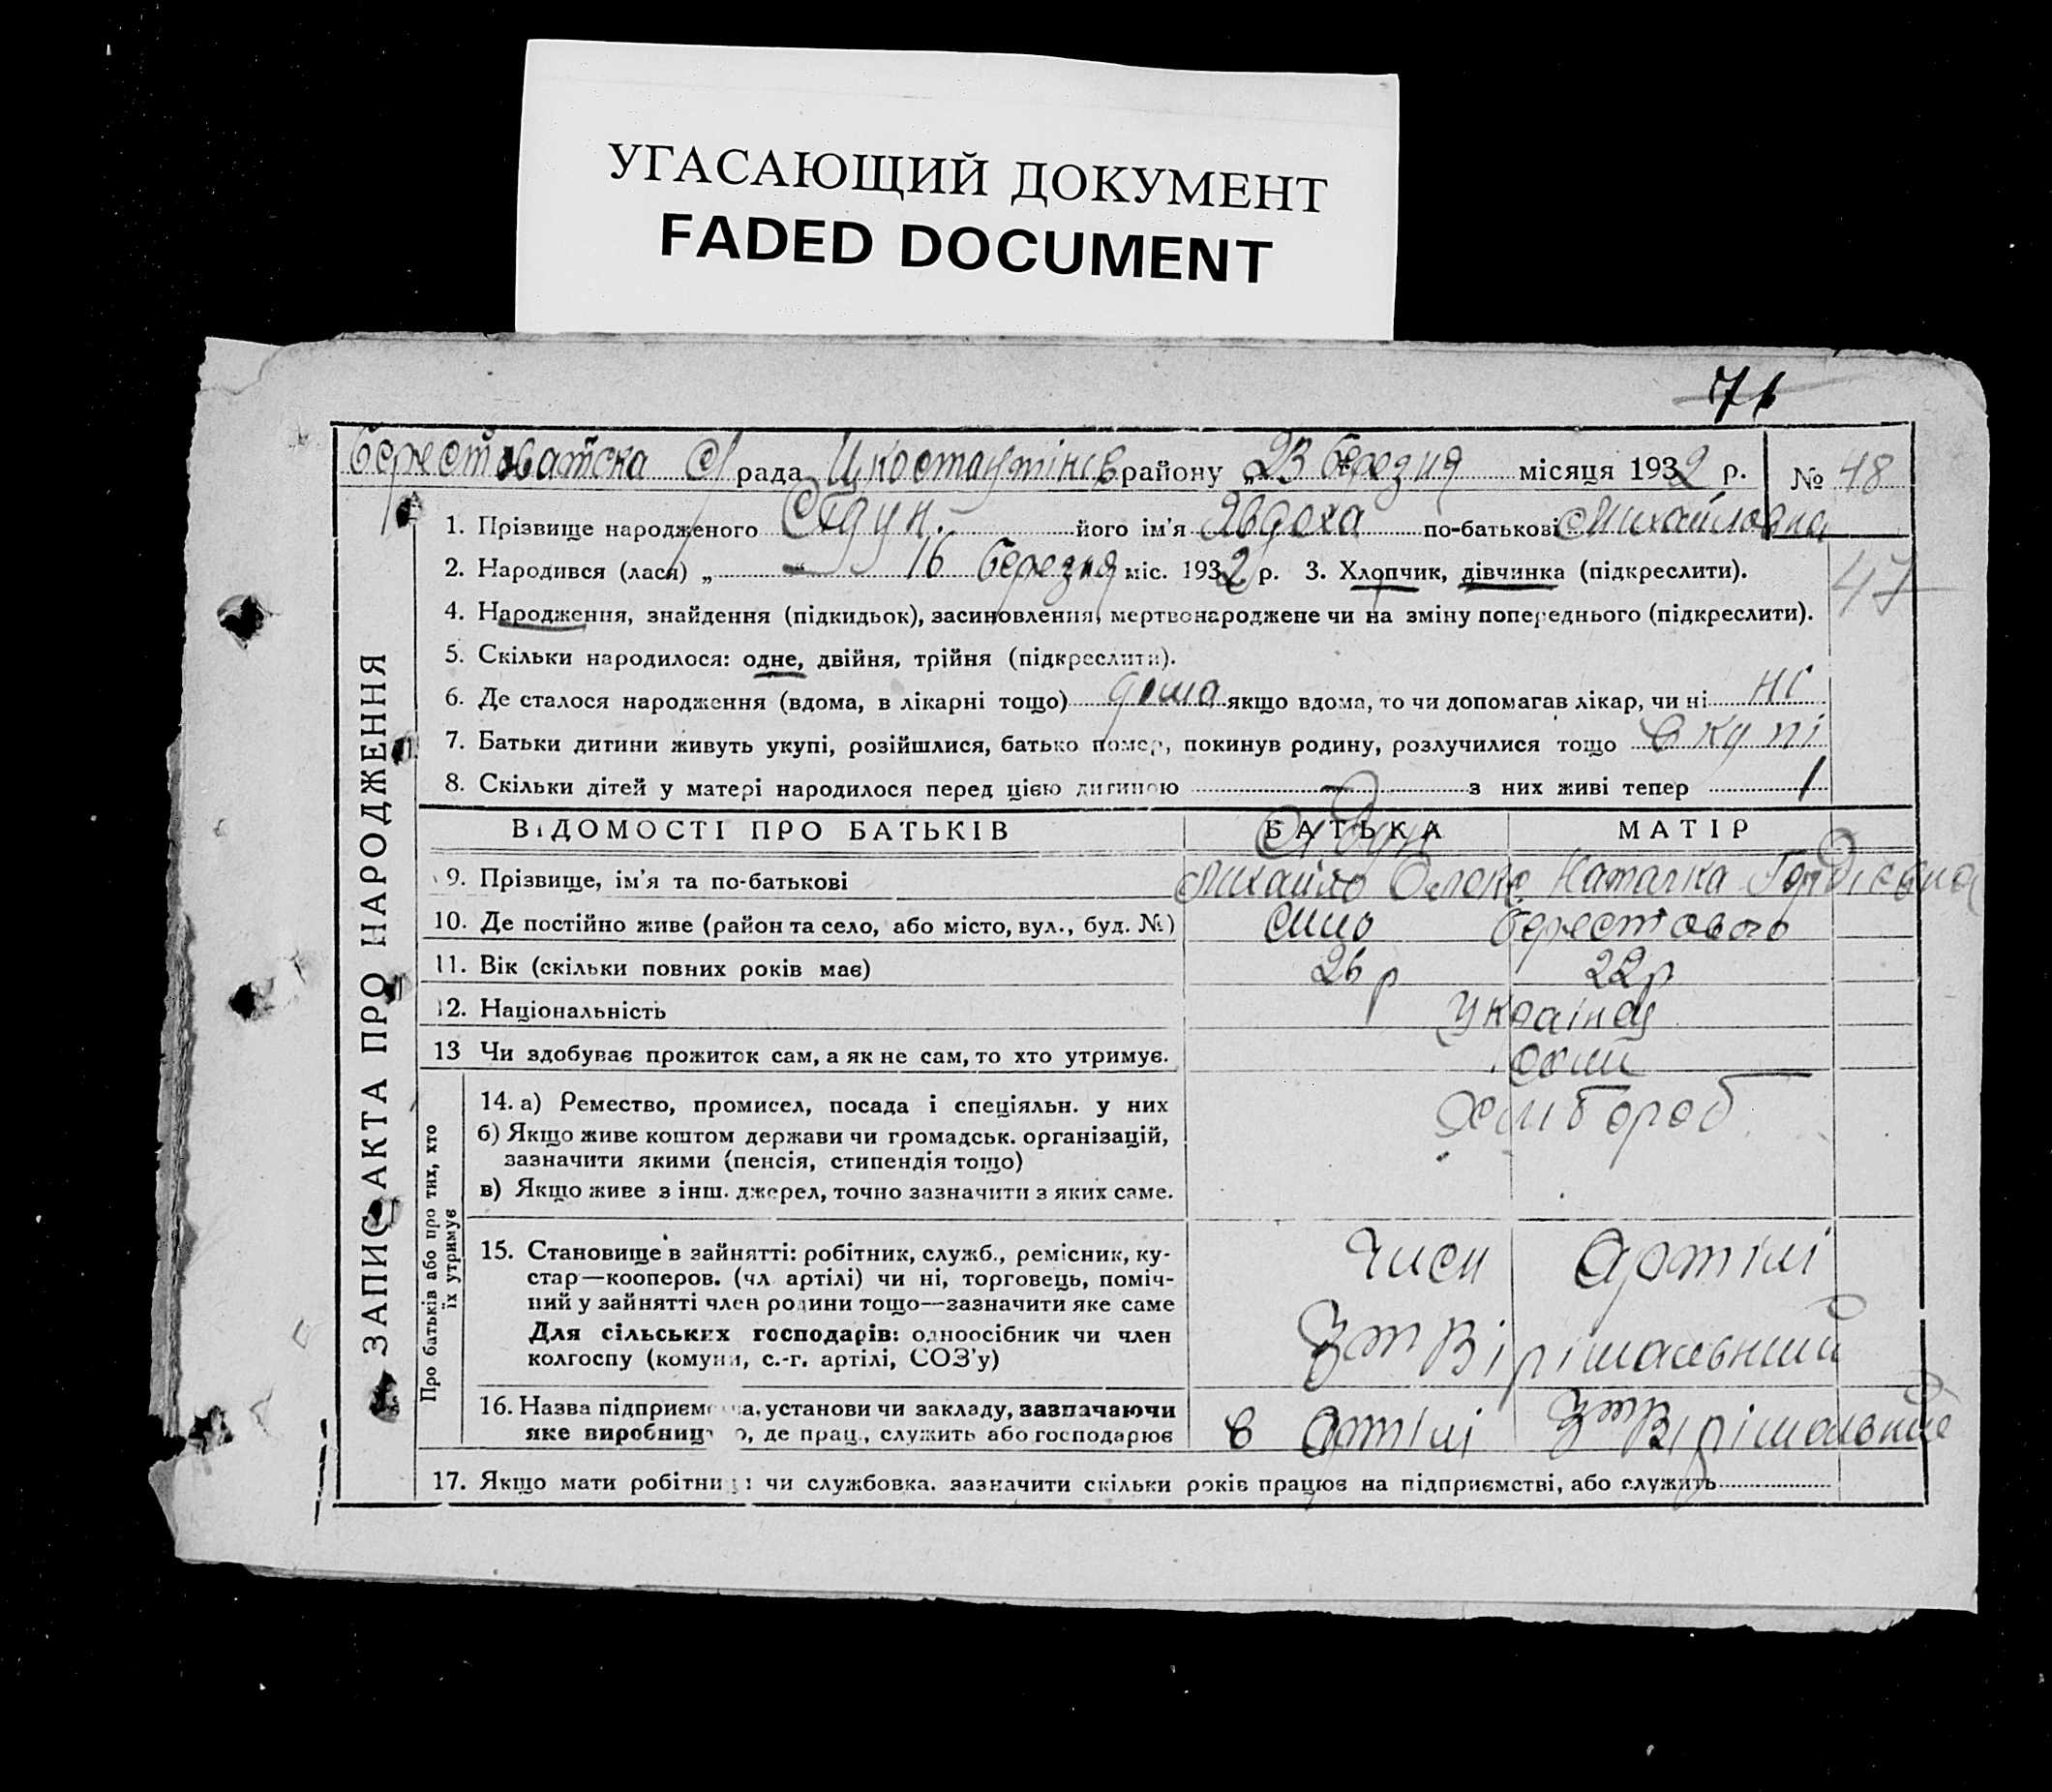 УГАСАЮЩИЙ ДОКУМЕНТ
FADED DOCUMENT
71
рада району „23 березня місяця 1932 р. № 48
1. Прізвище народженого його ім'я Явдоха по-батькові Михайловна
2. Народився (лася) „ 16 березня міс. 1932 р. 3. Хлопчик, дівчинка (підкреслити).
47
4. Народження, знайдення (підкидьок), засиновлення, мертвонароджене чи на зміну попереднього (підкреслити).
5. Скільки народилося: одне, двійня, трійня (підкреслити).
6. Де сталося народження (вдома, в лікарні тощо) дома якщо вдома, то чи допомагав лікар, чи ні ні
7. Батьки дитини живуть укупі, розійшлися, батько помер, покинув родину, розлучилися тощо вкупі
8. Скільки дітей у матері народилося перед цією дитиною — з них живі тепер 1
ЗАПИС АКТА ПРО НАРОДЖЕННЯ
ВІДОМОСТІ ПРО БАТЬКІВ БАТЬКА МАТІР
9. Прізвище, ім'я та по-батькові Михайло Наталка
10. Де постійно живе (район та село, або місто, вул., буд. №)
11. Вік (скільки повних років має) 26 р 22 р
12. Національність
13 Чи здобуває прожиток сам, а як не сам, то хто утримує.
Про батьків або про тих, хто
їх утримує
14. а) Ремество, промисел, посада і спеціяльн. у них хліборов
б) Якщо живе коштом держави чи громадськ. організацій,
зазначити якими (пенсія, стипендія тощо)
в) Якщо живе з інш. джерел, точно зазначити з яких саме.
15. Становище в зайнятті: робітник, служб., ремісник, ку-
стар—кооперов. (чл артілі) чи ні, торговець, поміч-
ний у зайнятті член родини тощо—зазначити яке саме
Для сільських господарів: одноосібник чи член
колгоспу (комуни, с.-г. артілі, СОЗ'у)
член артілі
16. Назва підприємства, установи чи закладу, зазначаючи
яке виробництво, де прац., служить або господарює в артілі
17. Якщо мати робітниця чи службовка. зазначити скільки років працює на підприємстві, або служить